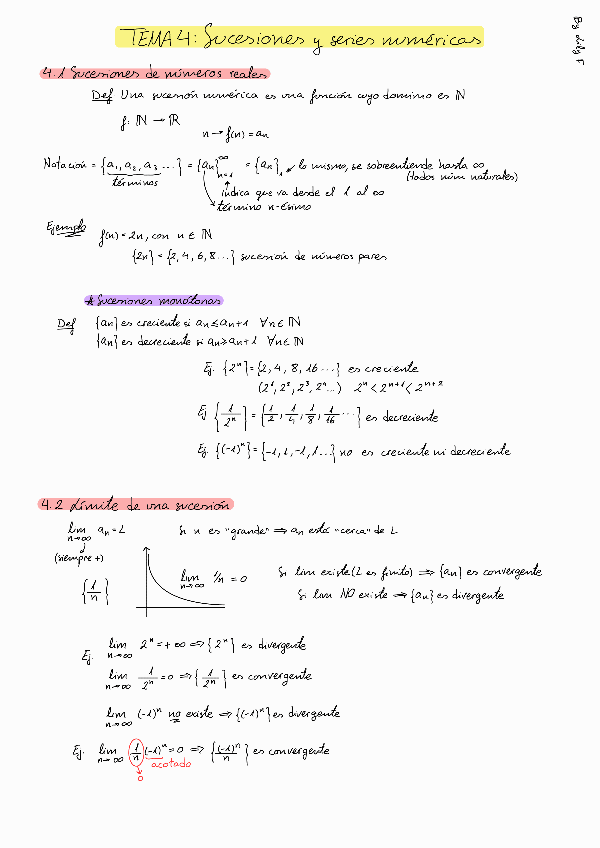 TEMA 4: Sucesiones y series numéricas
By Lidy F
4.1 Sucesiones de números reales
Def Una sucesión numérica es una función cuyo dominio es ℕ
f: ℕ → ℝ
n → f(n) = an
Notación = {a1, a2, a3 ...} = {an}∞n=1 = {an}1 lo mismo, se sobreentiende hasta ∞
términos (todos núm naturales)
indica que va desde el 1 al ∞
término n-ésimo
Ejemplo f(n) = 2n, con n ∈ ℕ
{2n} = {2, 4, 6, 8...} sucesión de números pares
* Sucesiones monótonas
Def {an} es creciente si an ≤ an+1 ∀n ∈ ℕ
{an} es decreciente si an ≥ an+1 ∀n ∈ ℕ
Ej. {2ⁿ} = {2, 4, 8, 16 ...} es creciente
(2¹, 2², 2³, 2ⁿ...) 2ⁿ < 2ⁿ⁺¹ < 2ⁿ⁺²
Ej {1/2ⁿ} = {1/2, 1/4, 1/8, 1/16 ...} es decreciente
Ej. {(-1)ⁿ} = {-1, 1, -1, 1...} no es creciente ni decreciente
4.2 Límite de una sucesión
lim n→∞ an = L Si n es "grande" ⇒ an está "cerca" de L
(siempre +)
{1/n} lim n→∞ 1/n = 0 Si lim existe (L es finito) ⇒ {an} es convergente
Si lim NO existe ⇒ {an} es divergente
Ej. lim n→∞ 2ⁿ = +∞ ⇒ {2ⁿ} es divergente
lim n→∞ 1/2ⁿ = 0 ⇒ {1/2ⁿ} es convergente
lim n→∞ (-1)ⁿ no existe ⇒ {(-1)ⁿ} es divergente
Ej. lim n→∞ 1/n (-1)ⁿ = 0 ⇒ {(-1)ⁿ/n} es convergente
acotado
0